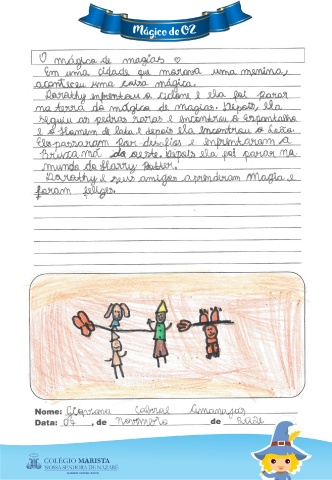 Mágico de OZ
O mágico de magias
Em uma cidade que morava uma menina,
aconteceu uma coisa mágica.
Dorothy enfrentou o ciclone e ela foi parar
na terra do mágico de magias. Depois, ela
seguiu as pedras raras e encontrou o Espantalho
e o Homem de lata e depois ela encontrou o Leão.
Eles passaram por desafios e enfrentaram a
Bruxa má do oeste. Depois ela foi parar no
mundo do Harry Potter.
Dorothy e seus amigos aprenderam Magia e
foram felizes.
Nome: Geovana Cabral
Data: 07, de novembro de
COLÉGIO MARISTA
NOSSA SENHORA DE NAZARÉ